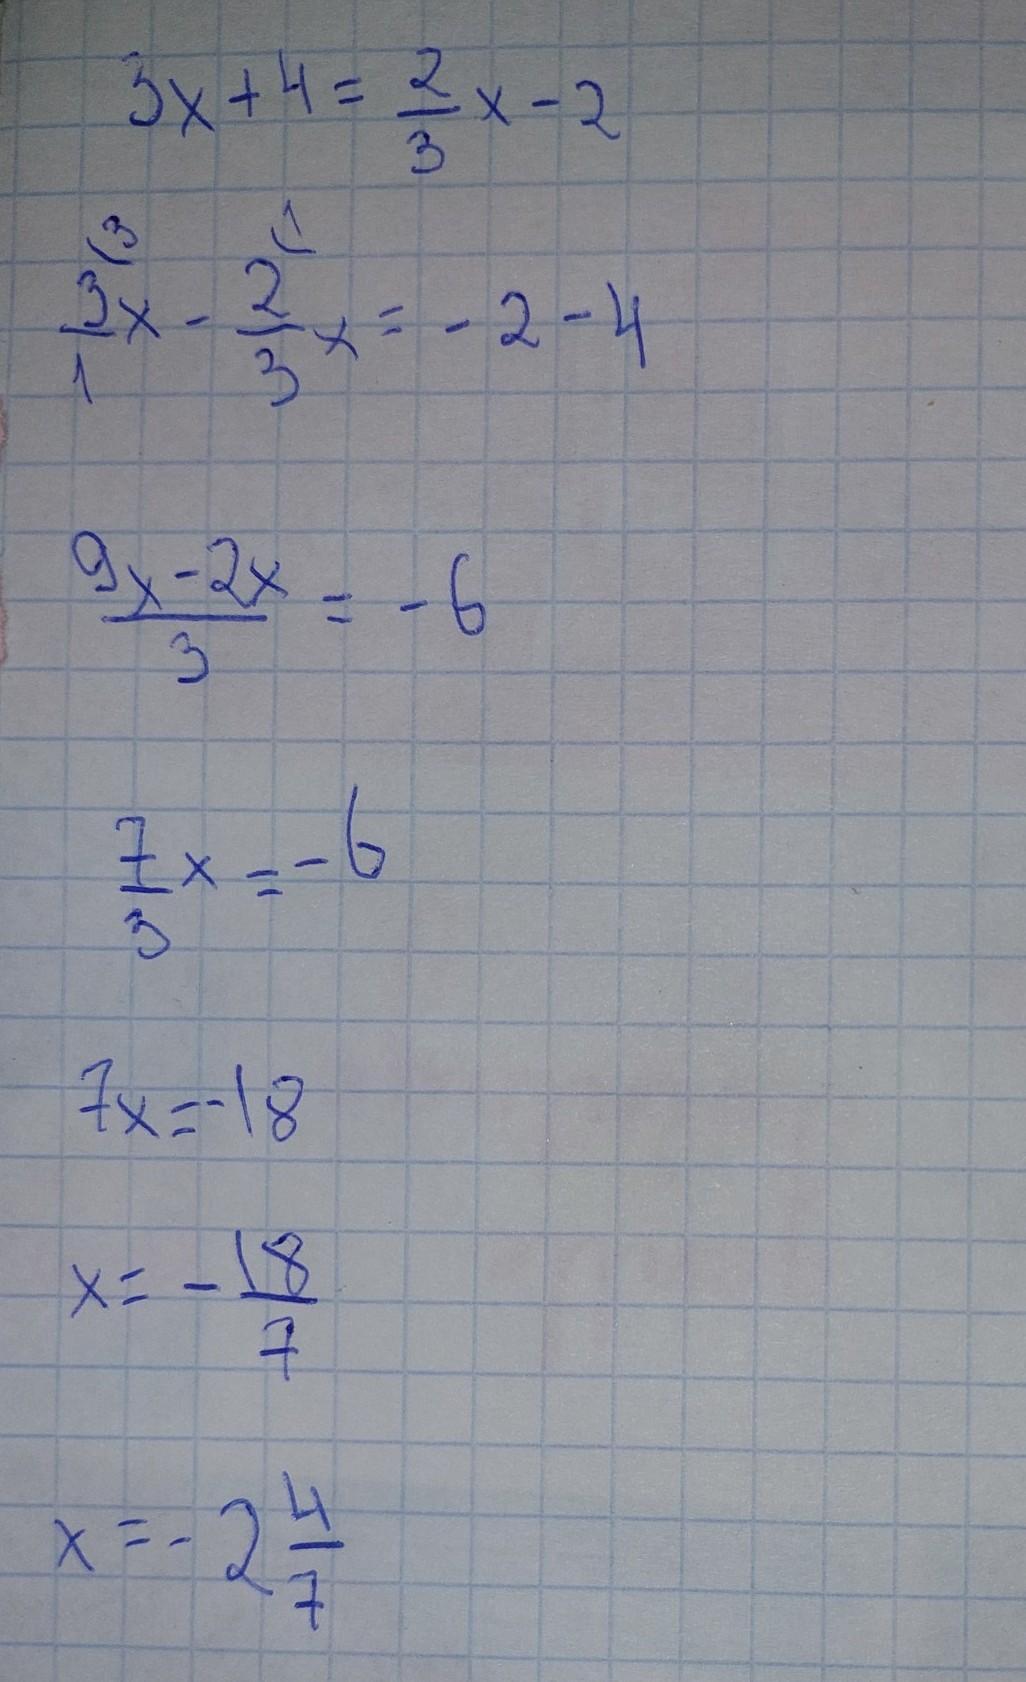 3x+4=2/3x-2
3(3/1x-2(1/3x=-2-4
9x-2x/3=-6
7/3x=-6
7x=-18
x=-18/7
x=-2 4/7